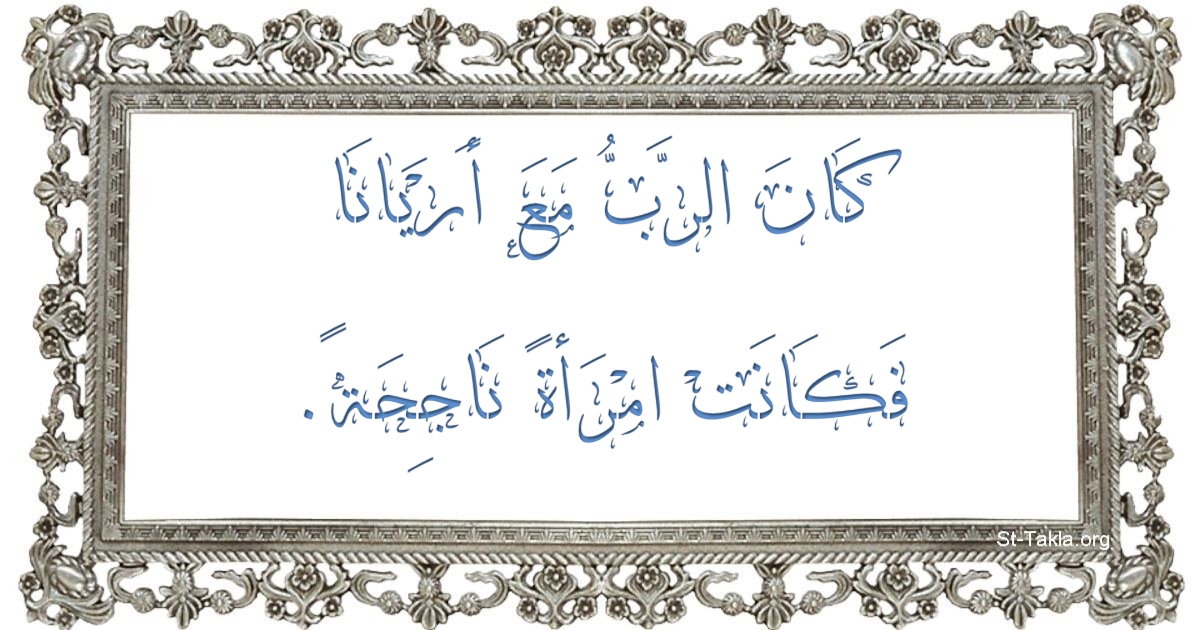 كَانَ الرَّبُّ مَعَ أَريَانَا
فَكَانَتْ امْرَأَةً نَاجِحَةً.
St-Takla.org